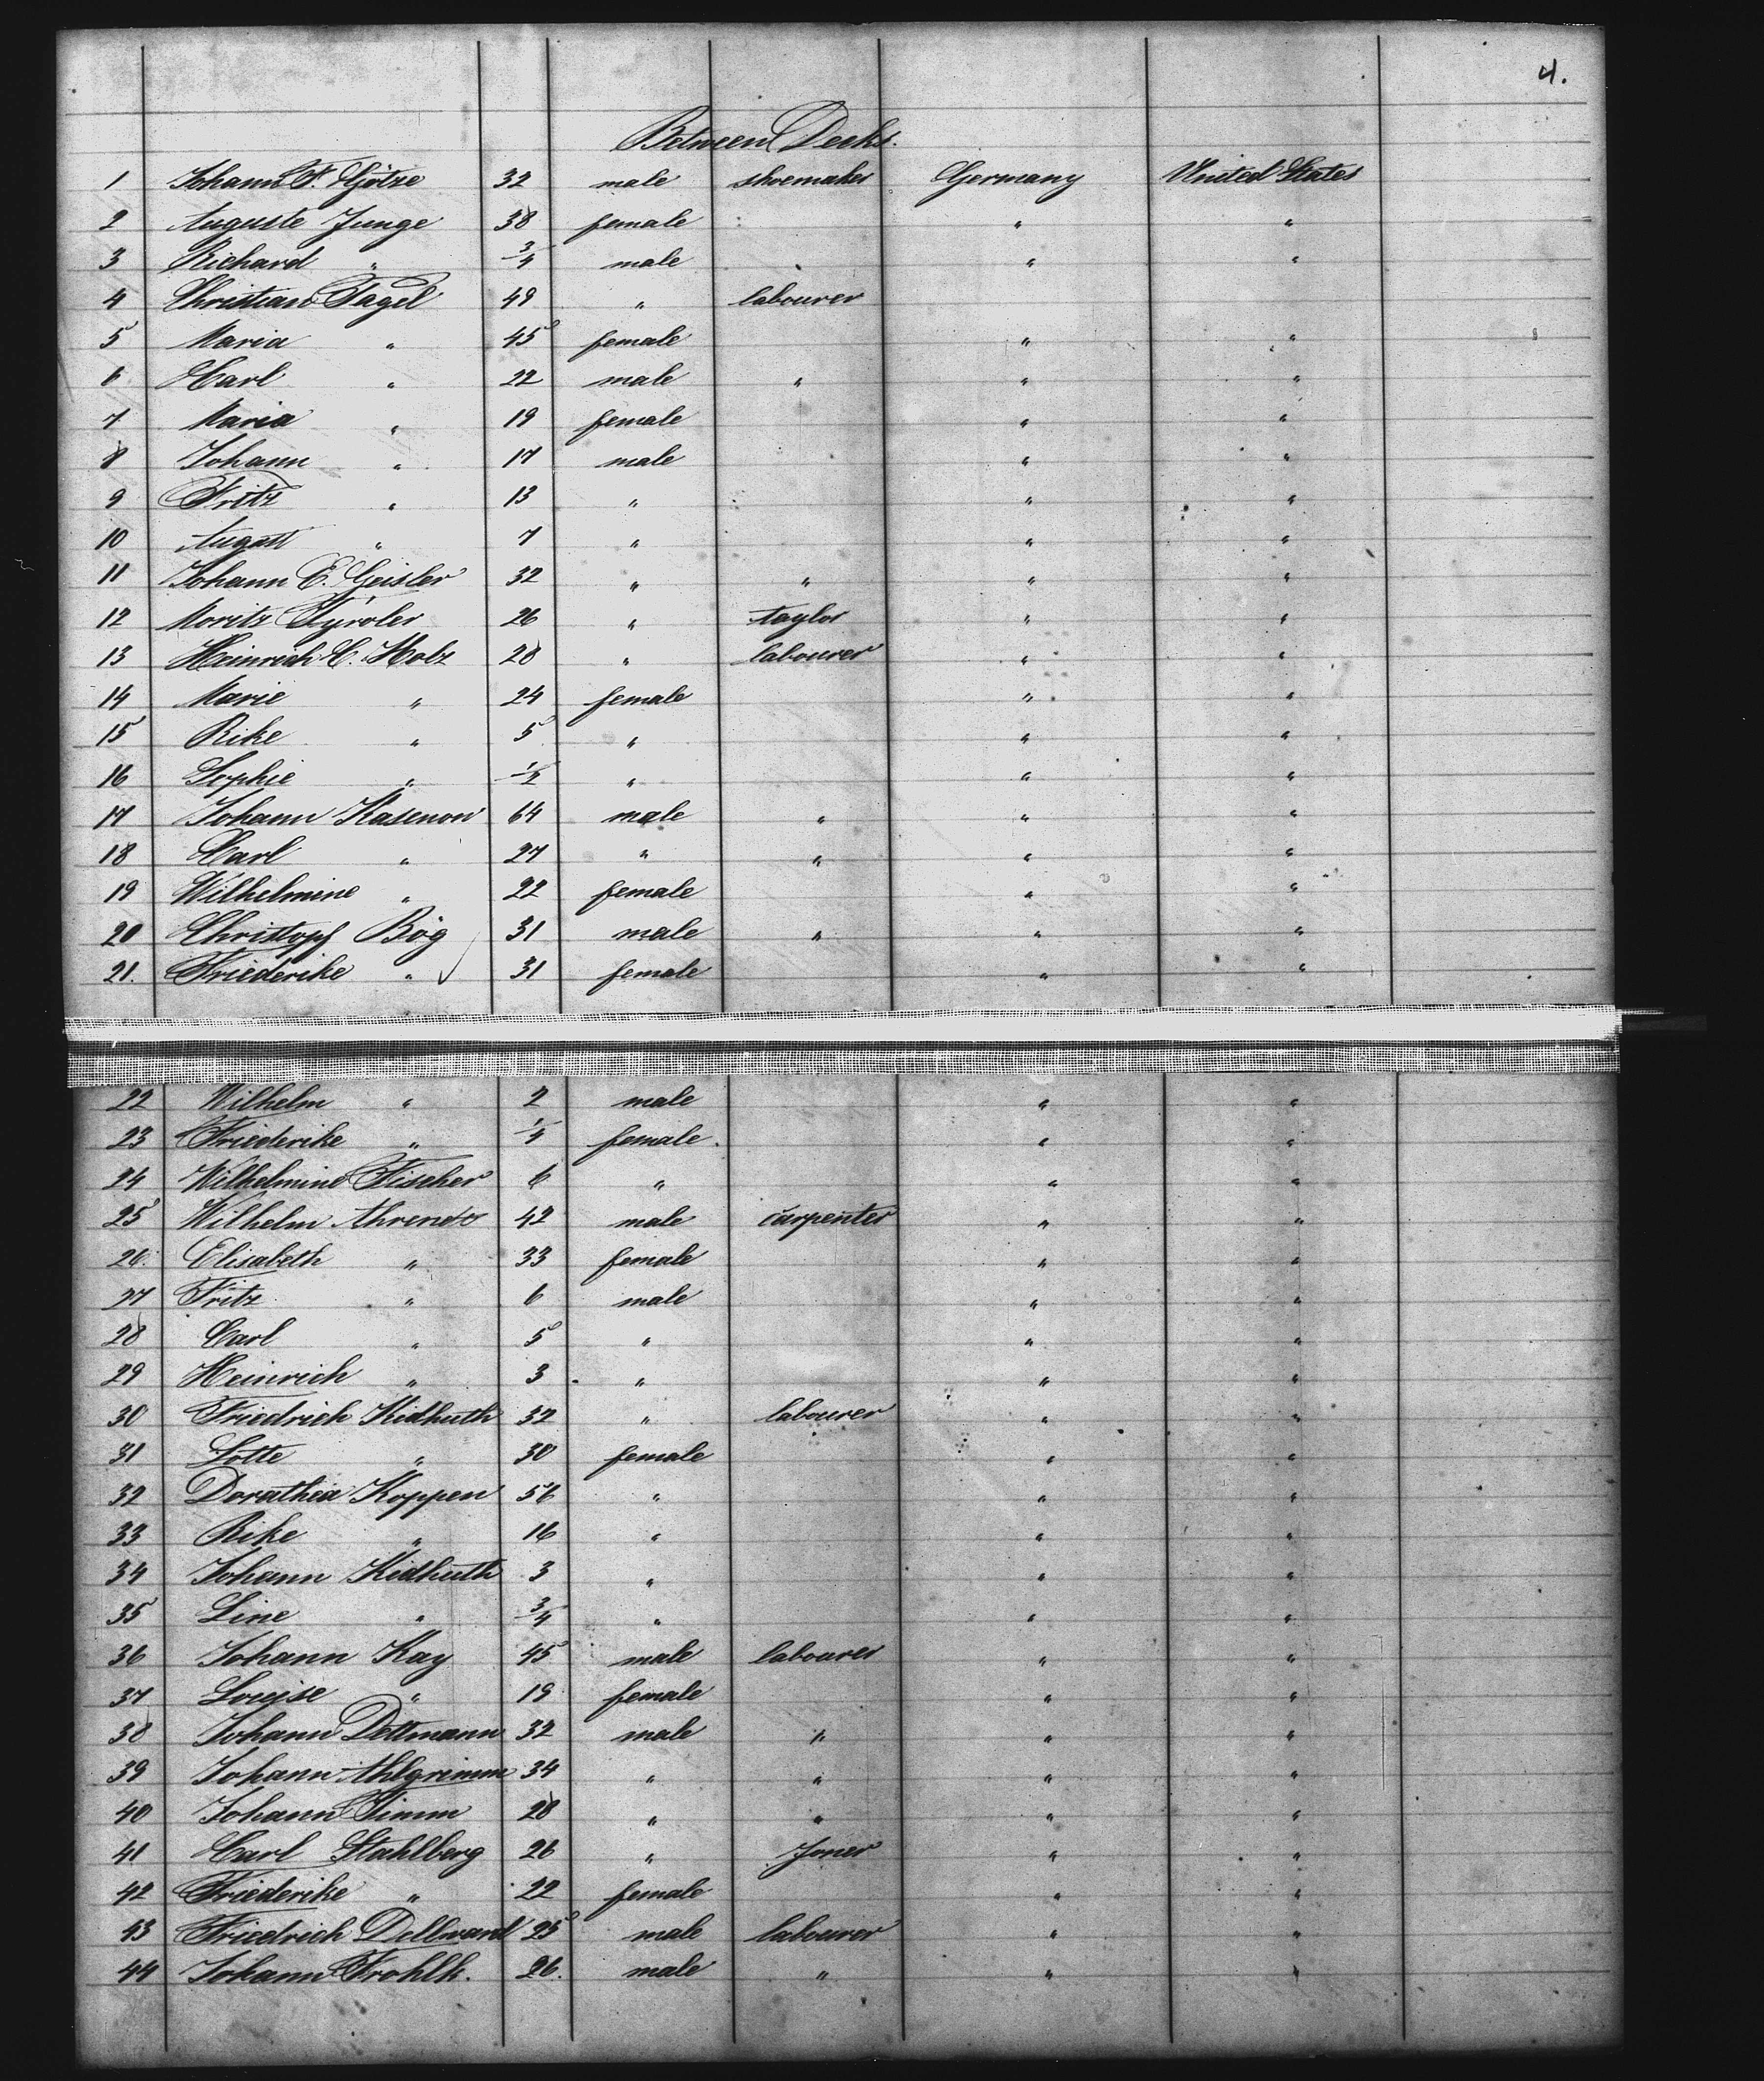 4.
Between Decks.
1 Johann F. Götze 32 male shoemaker Germany United States
2 Auguste Junge 38 female " "
3 Richard " 3/4 male " "
4 Christian Pagel 49 " labourer
5 Maria " 45 female " "
6 Carl " 22 male " " "
7 Maria " 19 female " "
8 Johann " 17 male " "
9 Fritz " 13 " " "
10 August " 7 " " "
11 Johann C. Geisler 32 " " " "
12 Moritz Tyroler 26 " taylor " "
13 Heinrich C. Holz 28 " labourer " "
14 Marie " 24 female " "
15 Rike " 5 " " "
16 Sophie " 1/2 " " "
17 Johann Kasenow 64 male " " "
18 Carl " 27 " " " "
19 Wilhelmine " 22 female " "
20 Christopf Bög 31 male " " "
21. Friederike " 31 female " "
22 Wilhelm " 2 male " "
23 Friederike " 1/4 female. " "
24 Wilhelmine Fischer 6 " " "
25 Wilhelm Ahrends 42 male carpenter " "
26. Elisabeth " 33 female " "
27 Fritz " 6 male " "
28 Carl " 5 " " "
29 Heinrich " 3 " " "
30 Friedrich Kidhuth 32 " labourer " "
31 Lotte " 30 female " "
32 Dorathea Koppen 56 " " "
33 Rike " 16 " " "
34 Johann Kidhuth 3 " " "
35 Line " 3/4 " " "
36 Johann Kay 45 male labourer " "
37 Louise " 19 female " "
38 Johann Dettmann 32 male " " "
39 Johann Ahlgrimm 34 " " " "
40 Johann Timm 28 " " " "
41 Carl Stahlberg 26 " Joner " "
42 Friederike " 22 female " "
43 Friedrich Dellwardt 25 male labourer " "
44 Johann Frohlk. 26. male " " "